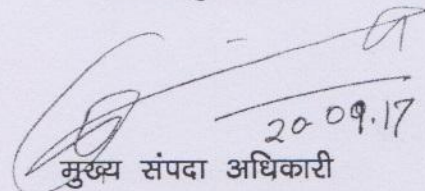 20-09.17
मुख्य संपदा अधिकारी